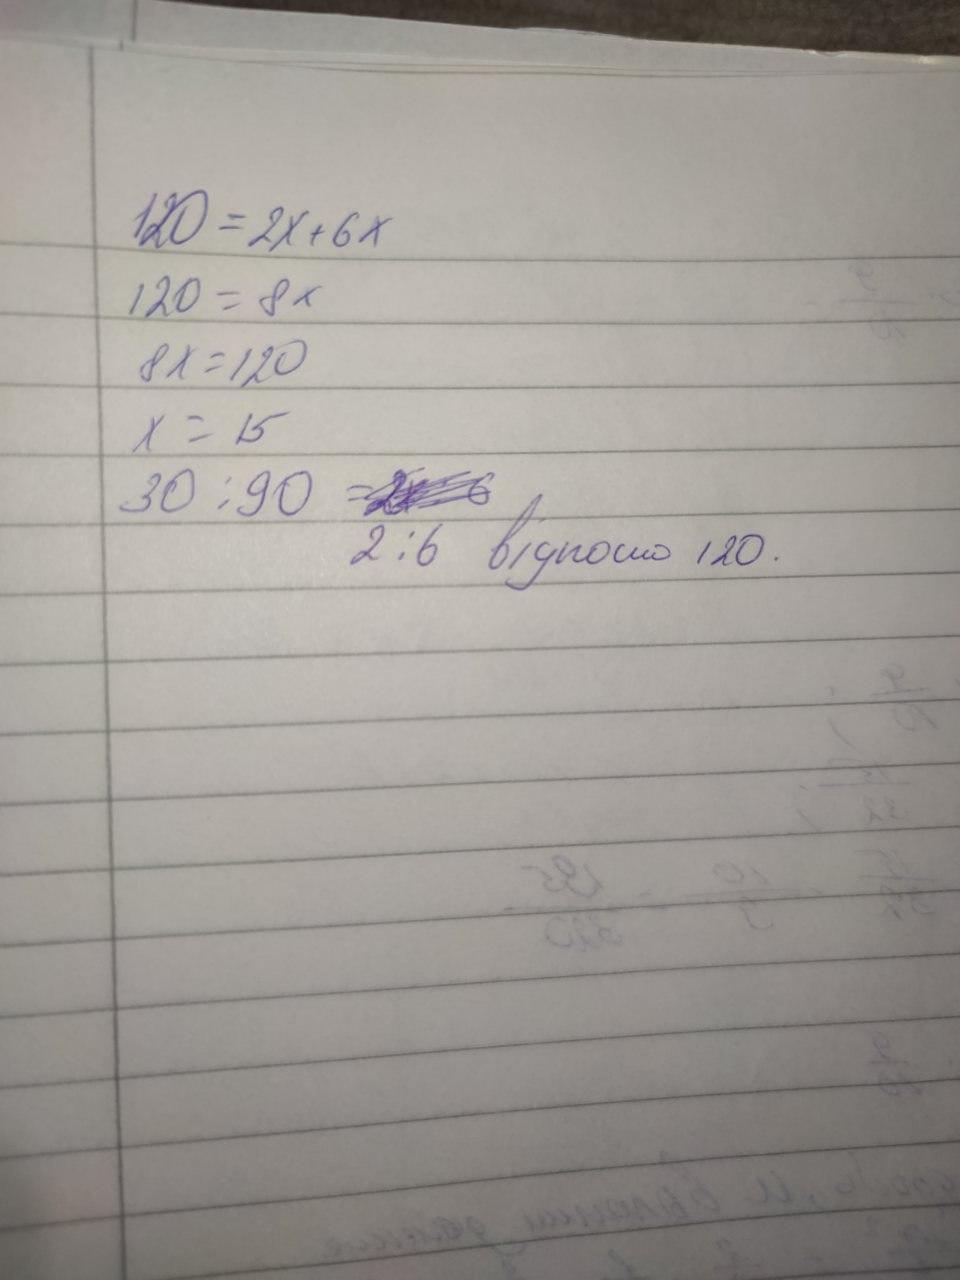 120 = 2x + 6x
120 = 8x
8x = 120
x = 15
30 : 90 =
2 : 6 відносно 120.